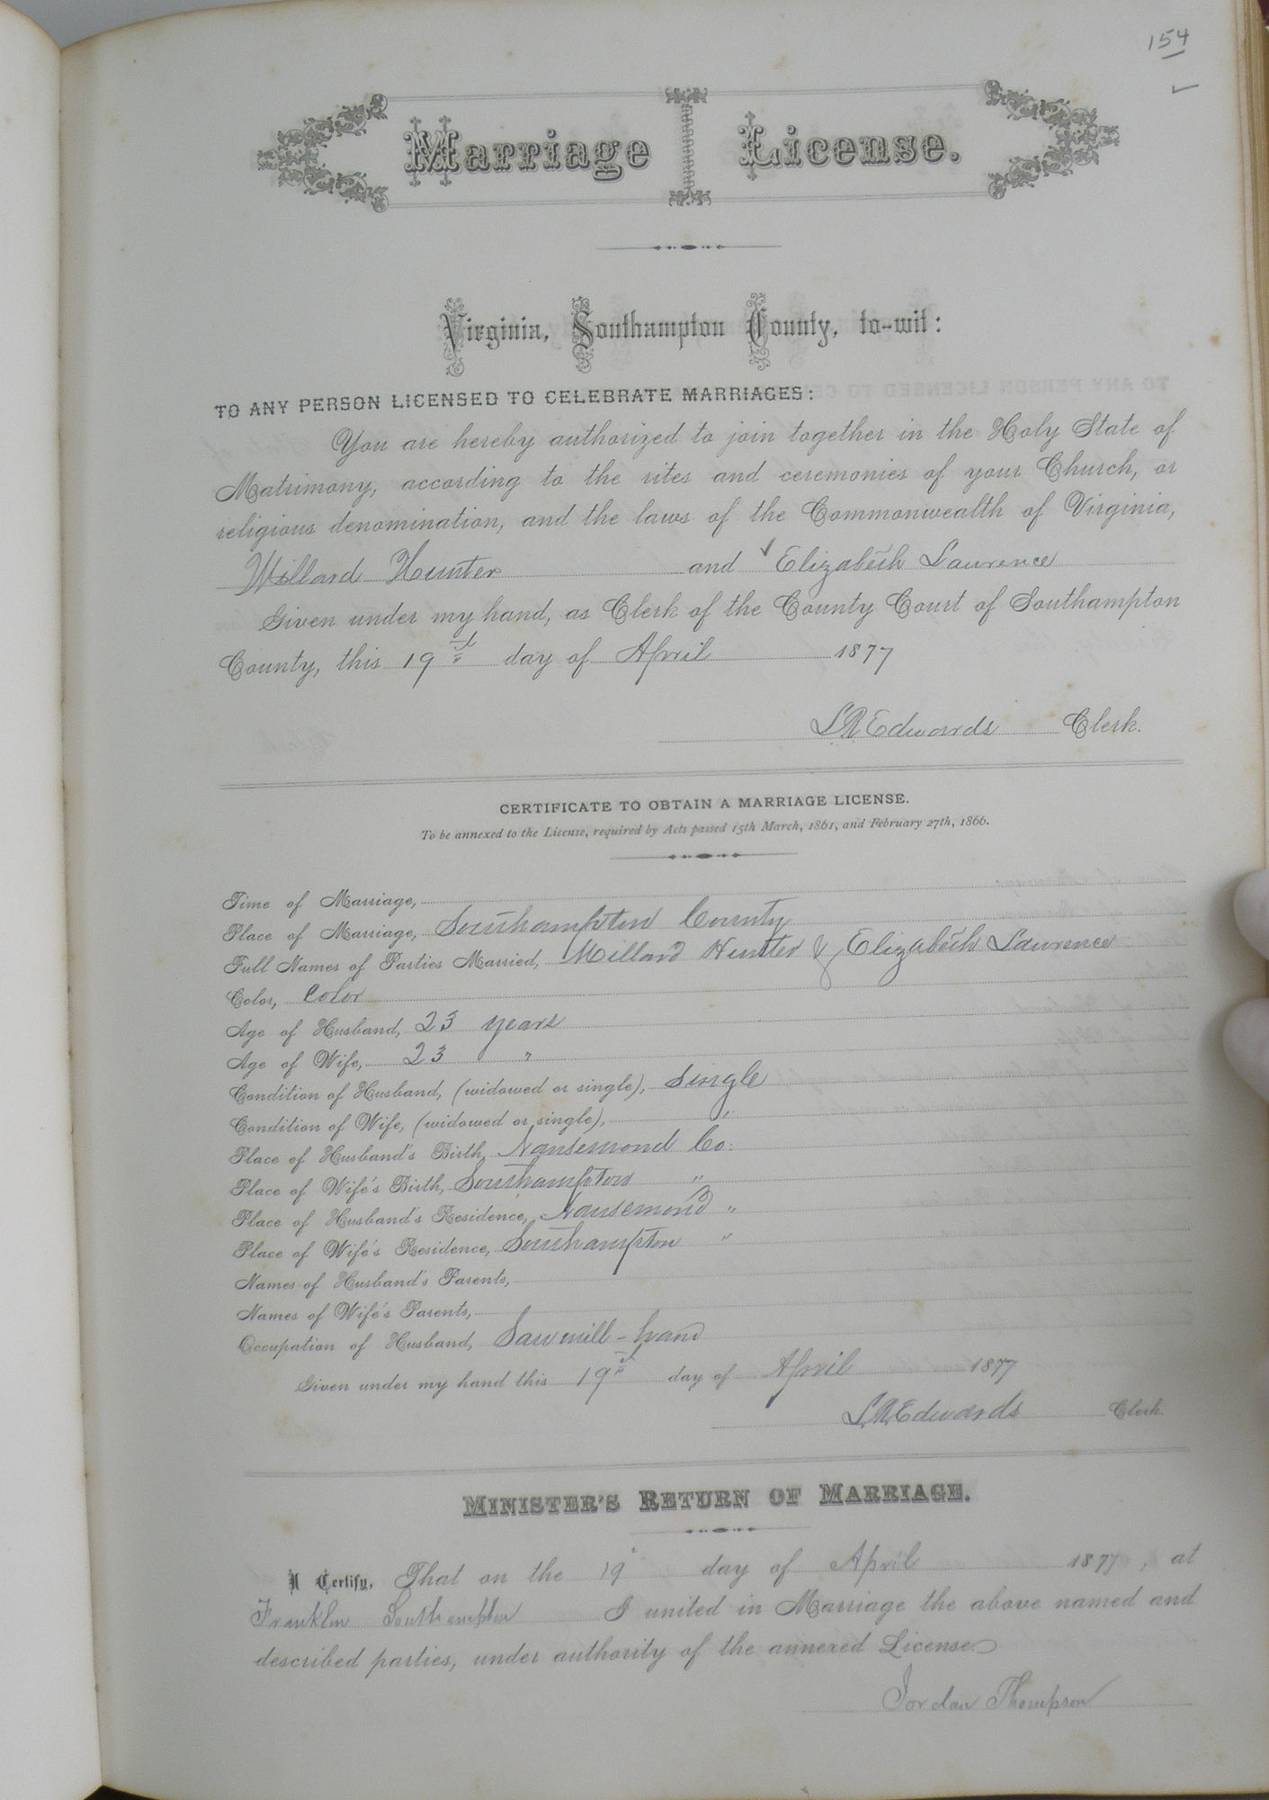 154
Marriage License.
Virginia, Southampton County, to-wit:
TO ANY PERSON LICENSED TO CELEBRATE MARRIAGES:
You are hereby authorized to join together in the Holy State of
Matrimony, according to the rites and ceremonies of your Church, or
religious denomination, and the laws of the Commonwealth of Virginia,
Millard Hunter and Elizabeth Lawrence
Given under my hand, as Clerk of the County Court of Southampton
County, this 19th day of April 1877
L R Edwards Clerk.
CERTIFICATE TO OBTAIN A MARRIAGE LICENSE.
To be annexed to the License, required by Acts passed 15th March, 1861, and February 27th, 1866.
Time of Marriage,
Place of Marriage, Southampton County
Full Names of Parties Married, Millard Hunter & Elizabeth Lawrence
Color, Color
Age of Husband, 23 years
Age of Wife, 23 "
Condition of Husband, (widowed or single), Single
Condition of Wife, (widowed or single), "
Place of Husband's Birth, Nansemond Co.
Place of Wife's Birth, Southampton "
Place of Husband's Residence, Nansemond "
Place of Wife's Residence, Southampton "
Names of Husband's Parents,
Names of Wife's Parents,
Occupation of Husband, Sawmill-hand
Given under my hand this 19th day of April 1877
L. R. Edwards Clerk.
MINISTER'S RETURN OF MARRIAGE.
I Certify, That on the 19 day of April 1877, at
Franklin Southampton I united in Marriage the above named and
described parties, under authority of the annexed License.
Jordan Thompson